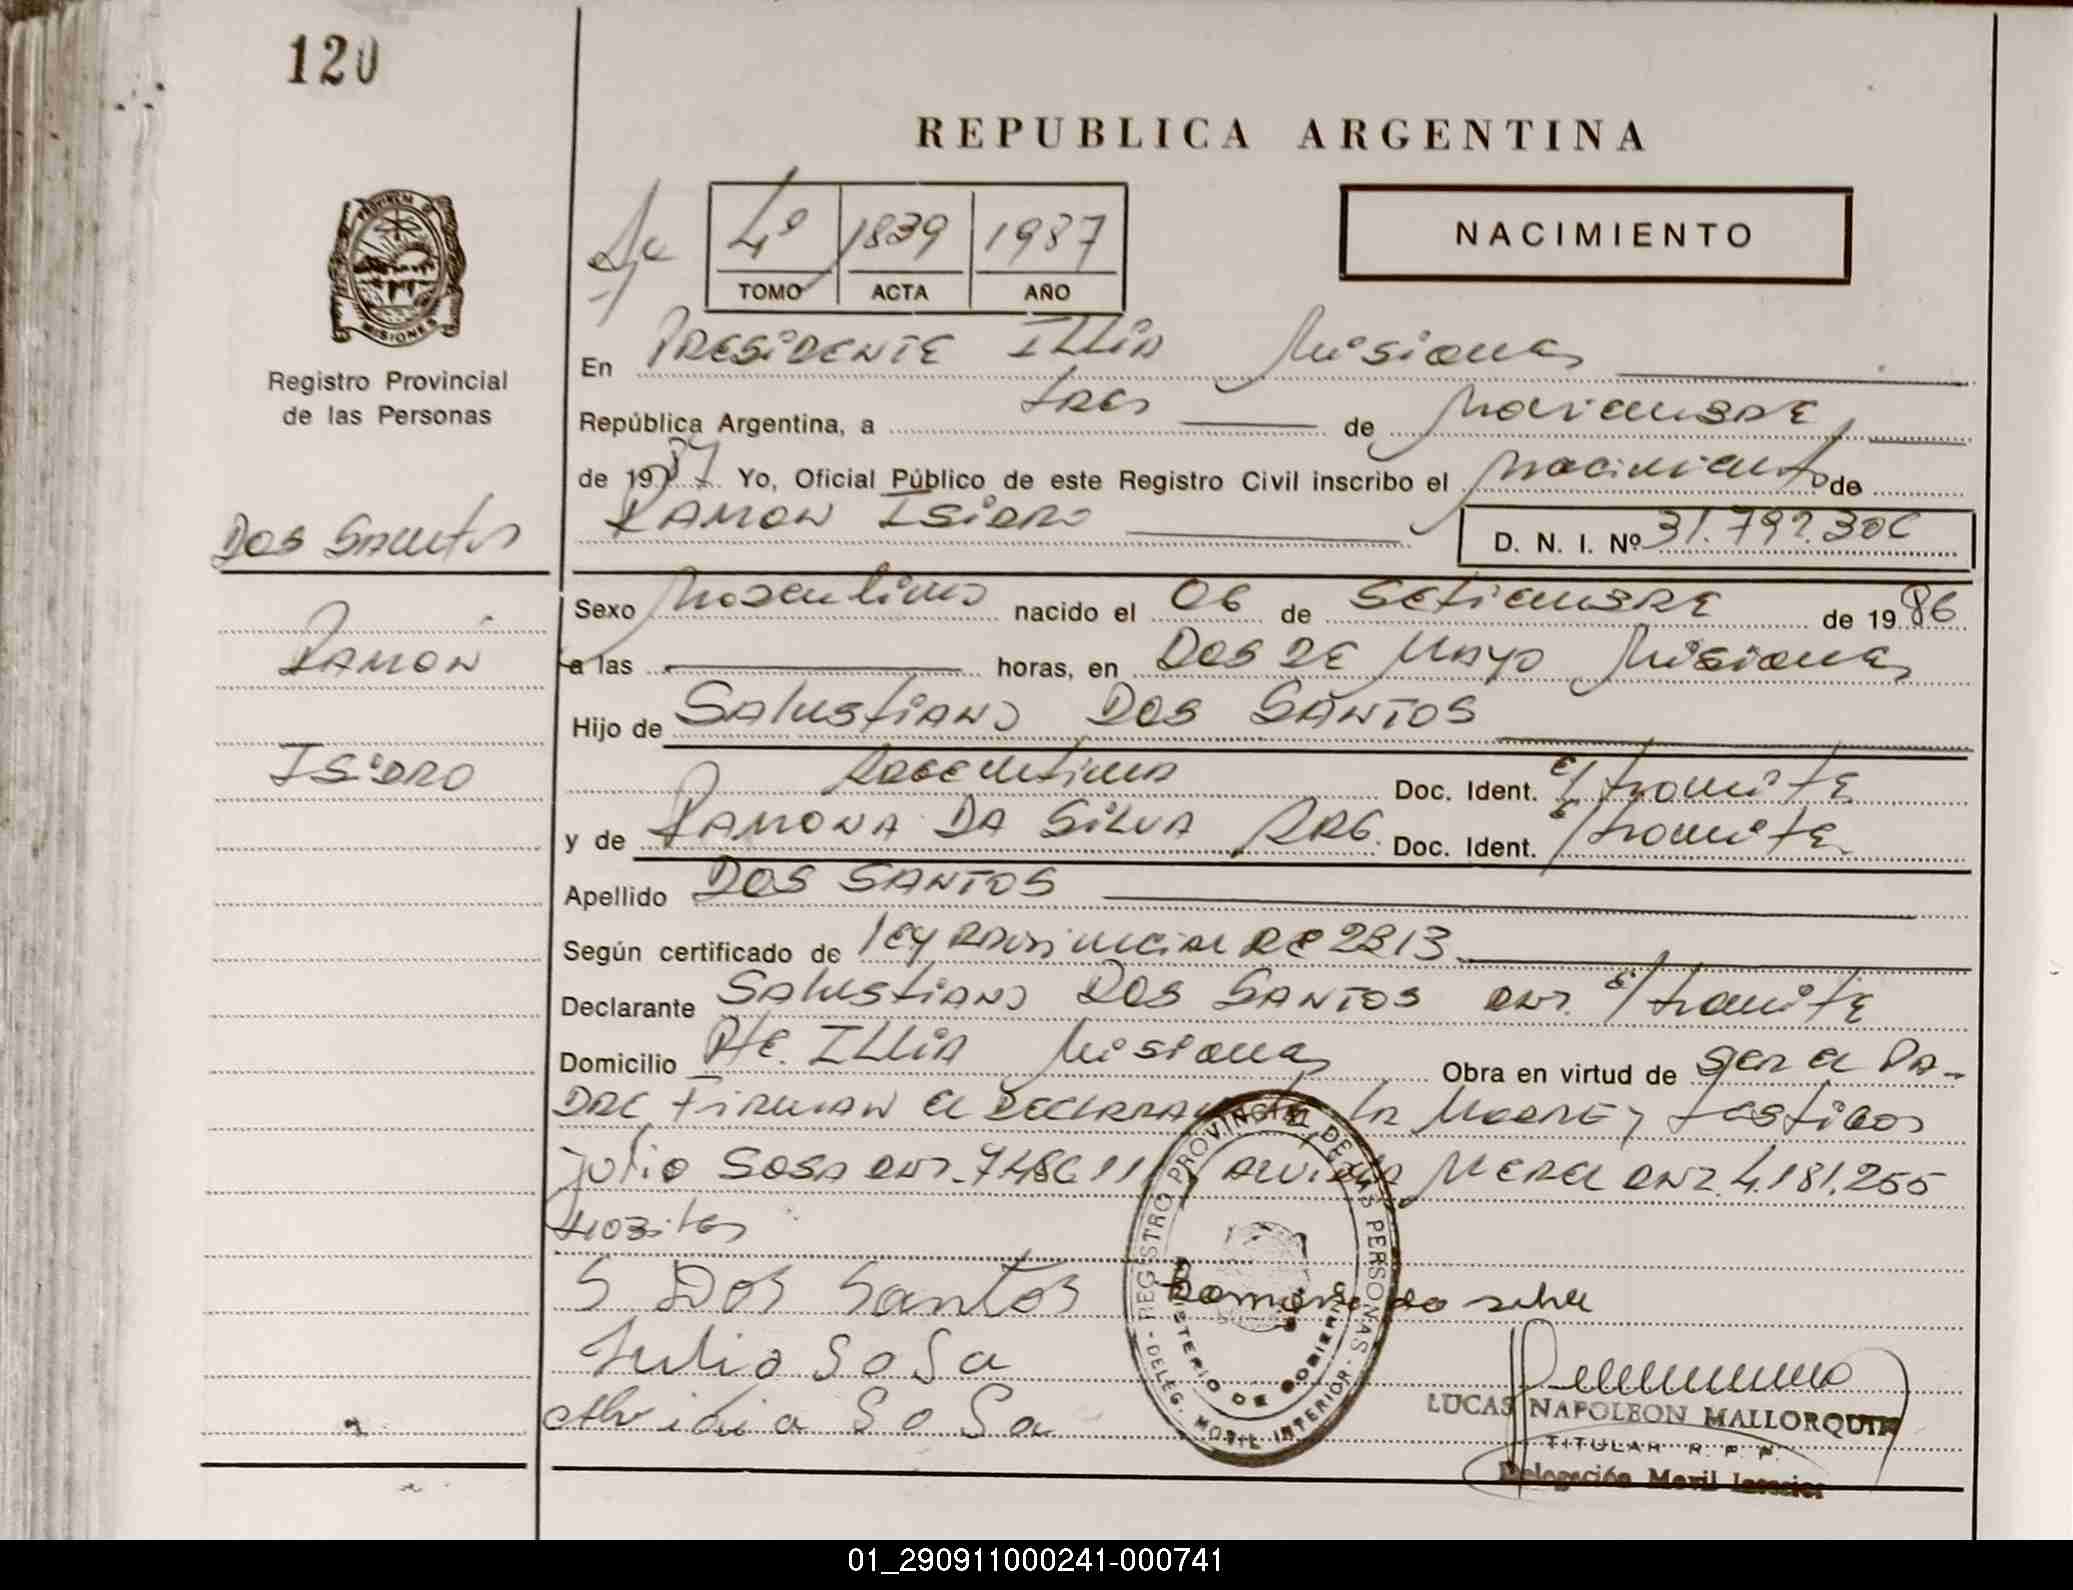 120
REPUBLICA ARGENTINA
4º 1839 1987
TOMO ACTA AÑO
NACIMIENTO
PROVINCIA DE MISIONES
Registro Provincial
de las Personas
Dos Santos
Ramon
Isidro
En PRESIDENTE ILLIA Misiones
República Argentina, a tres de Noviembre
de 1987 Yo, Oficial Público de este Registro Civil inscribo el Nacimiento de
RAMON ISIDRO D. N. I. Nº 31.792.30
Sexo Masculino nacido el 06 de Setiembre de 1986
a las horas, en DOS DE Mayo Misiones
Hijo de Salustiano DOS SANTOS
Argentina Doc. Ident. E/tramite
y de RAMONA DA SILVA ARG. Doc. Ident. E/tramite
Apellido DOS SANTOS
Según certificado de ley provincial DE 2813
Declarante Salustiano DOS SANTOS DNI. E/tramite
Domicilio Pte. ILLIA Misiones Obra en virtud de ser el PA-
DRE Firman el DECLARANTE, la Madre y testigos
Julio SOSA DNI. 748611 DNI. 4.181.255
S Dos Santos Ramona da silva
Julio SoSa
Alvidia SoSa
REGISTRO PROVINCIAL DE LAS PERSONAS
MINISTERIO DE GOBIERNO
DELEG. MOVIL INTERIOR
LUCAS NAPOLEON MALLORQUIN
TITULAR R. P. P.
Delegación Movil Interior
01_290911000241-000741